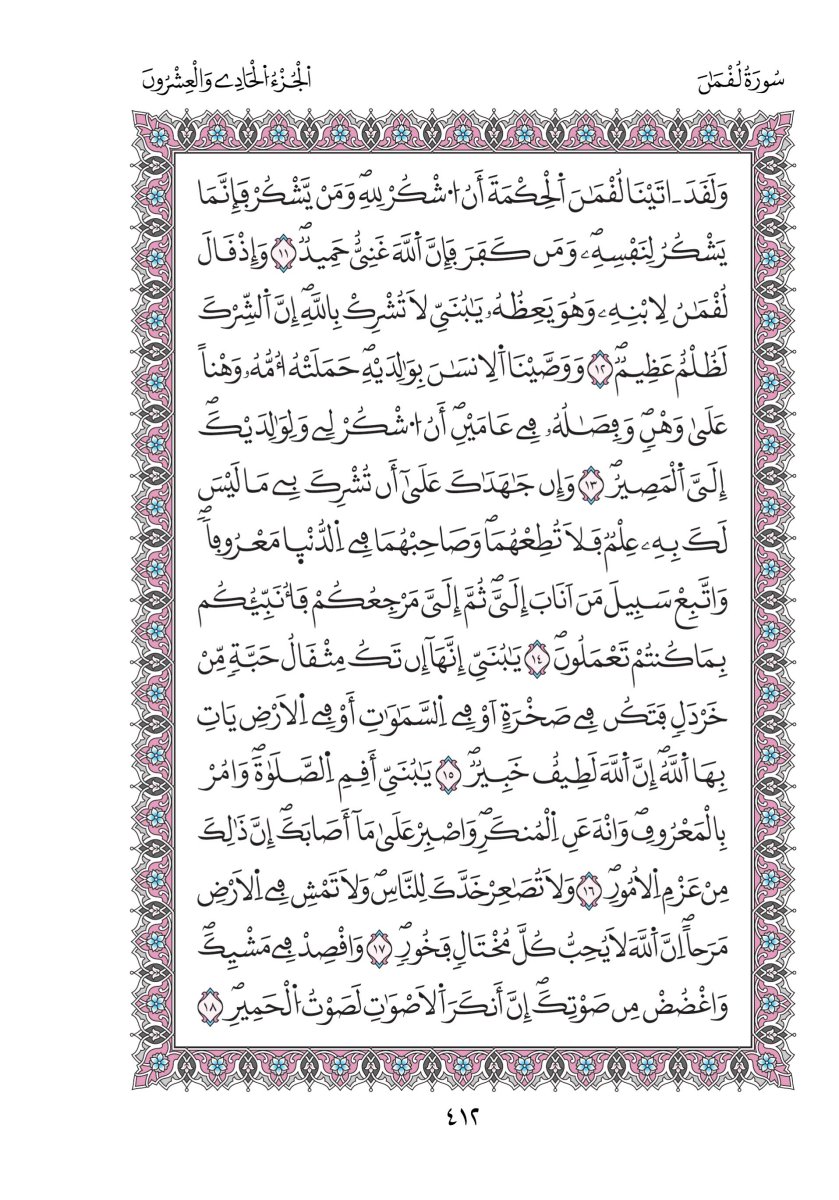 سُورَةُ لُقْمَٰنَ
اَ۬لْجُزْءُ اُ۬لْحَادِے وَالْعِشْرُونَ
وَلَقَدَ اٰتَيْنَا لُقْمَٰنَ اَ۬لْحِكْمَةَ أَنُ اُ۟شْكُرْ لِلهِۖ وَمَنْ يَّشْكُرْ فَإِنَّمَا
يَشْكُرُ لِنَفْسِهِۦۖ وَمَن كَفَرَ فَإِنَّ اَ۬للَّهَ غَنِيٌّ حَمِيدٞۖ ١١ وَإِذْ قَالَ
لُقْمَٰنُ لِابْنِهِۦ وَهُوَ يَعِظُهُۥ يَٰبُنَيِّ لَا تُشْرِكْ بِاللَّهِۖ إِنَّ اَ۬لشِّرْكَ
لَظُلْمٌ عَظِيمٞۖ ١٢ وَوَصَّيْنَا اَ۬لِانسَٰنَ بِوَٰلِدَيْهِۖ حَمَلَتْهُ أُمُّهُۥ وَهْناً
عَلَىٰ وَهْنٖۖ وَفِصَٰلُهُۥ فِے عَامَيْنِۖ أَنُ اُ۟شْكُرْ لِے وَلِوَٰلِدَيْكَۖ
إِلَيَّ اَ۬لْمَصِيرُۖ ١٣ وَإِن جَٰهَدَٰكَ عَلَىٰٓ أَن تُشْرِكَ بِے مَا لَيْسَ
لَكَ بِهِۦ عِلْمٞ فَلَا تُطِعْهُمَاۖ وَصَاحِبْهُمَا فِے اِ۬لدُّنْيٜا مَعْرُوفاٗۖ
وَاتَّبِعْ سَبِيلَ مَنَ اَنَابَ إِلَيَّۖ ثُمَّ إِلَيَّ مَرْجِعُكُمْ فَأُنَبِّئُكُم
بِمَا كُنتُمْ تَعْمَلُونَۖ ١٤ يَٰبُنَيِّ إِنَّهَآ إِن تَكُ مِثْقَالُ حَبَّةٖ مِّنْ
خَرْدَلٖ فَتَكُن فِے صَخْرَةٍ اَوْ فِے اِ۬لسَّمَٰوَٰتِ أَوْ فِے اِ۬لَارْضِ يَاتِ
بِهَا اَ۬للَّهُۖ إِنَّ اَ۬للَّهَ لَطِيفٌ خَبِيرٞۖ ١٥ يَٰبُنَيِّ أَقِمِ اِ۬لصَّلَوٰةَۖ وَامُرْ
بِالْمَعْرُوفِۖ وَانْهَ عَنِ اِ۬لْمُنكَرِۖ وَاصْبِرْ عَلَىٰ مَآ أَصَابَكَۖ إِنَّ ذَٰلِكَ
مِنْ عَزْمِ اِ۬لُامُورِۖ ١٦ وَلَا تُصَٰعِرْ خَدَّكَ لِلنَّاسِۖ وَلَا تَمْشِ فِے اِ۬لَارْضِ
مَرَحاًۖ اِنَّ اَ۬للَّهَ لَا يُحِبُّ كُلَّ مُخْتَالٖ فَخُورٖۖ ١٧ وَاقْصِدْ فِے مَشْيِكَۖ
وَاغْضُضْ مِن صَوْتِكَۖ إِنَّ أَنكَرَ اَ۬لَاصْوَٰتِ لَصَوْتُ اُ۬لْحَمِيرِۖ ١٨
٤١٢